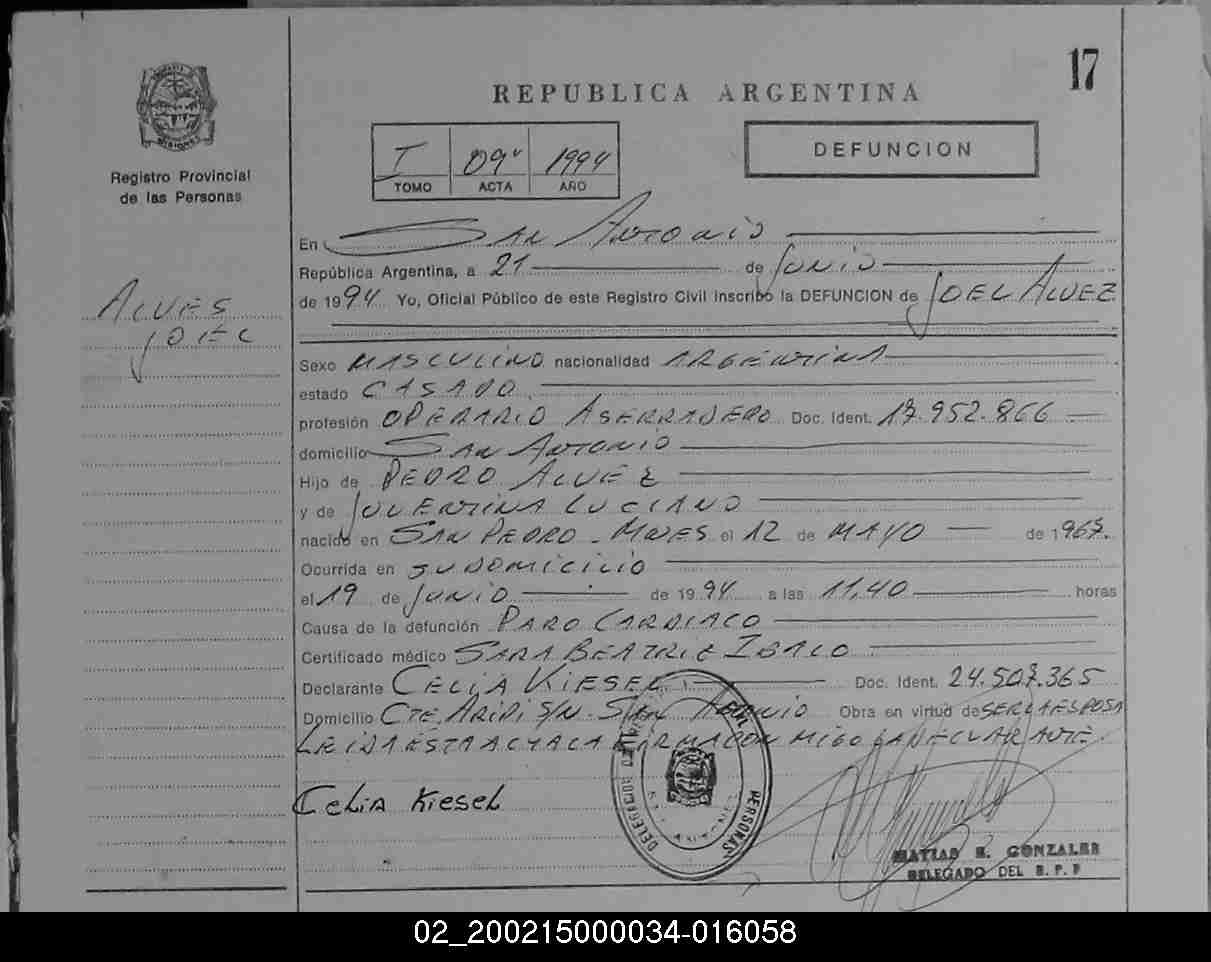 17
REPUBLICA ARGENTINA
MISIONES
Registro Provincial
de las Personas
I 09 1994
TOMO ACTA AÑO
DEFUNCION
En SAN ANTONIO
República Argentina, a 21 de JUNIO
de 1994 Yo, Oficial Público de este Registro Civil inscribo la DEFUNCION de JOEL ALVEZ
ALVES
JOEL
Sexo MASCULINO nacionalidad ARGENTINA
estado CASADO
profesión OPERARIO ASERRADERO Doc. Ident. 17.952.866
domicilio SAN ANTONIO
Hijo de PEDRO ALVEZ
y de JUVENTINA LUCIANO
nacido en SAN PEDRO - MNES el 12 de MAYO de 1967.
Ocurrida en SU DOMICILIO
el 19 de JUNIO de 1994 a las 11,40 horas
Causa de la defunción PARO CARDIACO
Certificado médico SARA BEATRIZ
Declarante CELIA KIESEL Doc. Ident. 24.507.365
Domicilio CTE. ARIPI S/N. SAN ANTONIO Obra en virtud de SER LA ESPOSA
LEIDA ESTA ACTA LA FIRMA CON MIGO LA DECLARANTE.
Celia Kiesel
PERSONAS
MATIAS E. GONZALES
DELEGADO DEL R. P. P
02_200215000034-016058